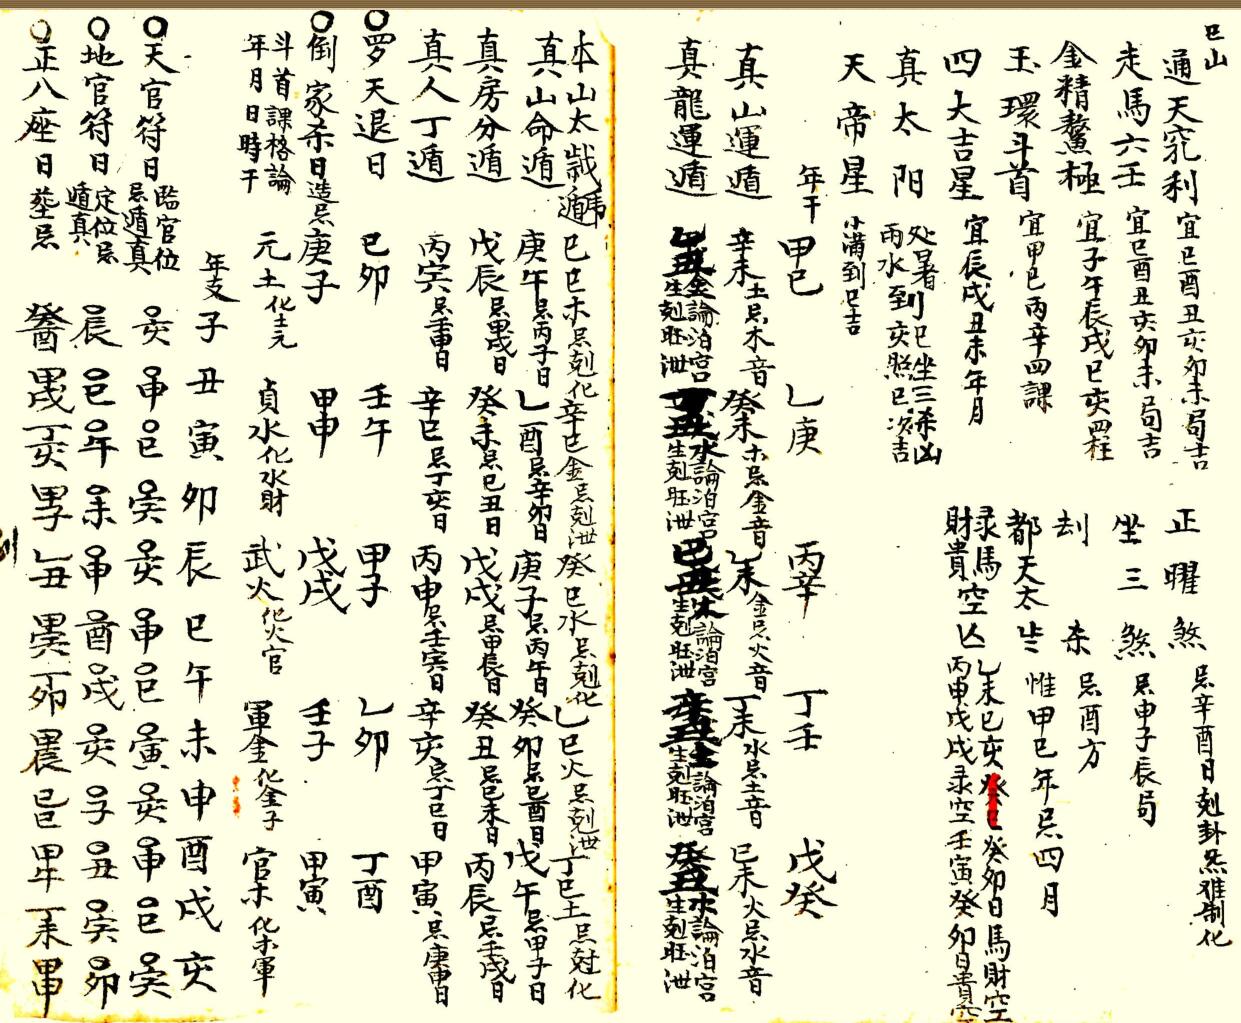 巳山
通天竅利 宜巳酉丑亥卯未局吉
走馬六壬 宜巳酉丑亥卯未局吉
金精鰲極 宜子午辰戌巳亥四柱
玉環斗首 宜甲巳丙辛四課
四大吉星 宜辰戌丑未年月
真太阳 处暑到巳坐三杀凶
雨水到亥照巳次吉
天帝星 小满到巳吉
正曜煞 忌辛酉日剋卦炁难制化
坐三煞 忌申子辰局
刦杀 忌酉方
都天太岁 惟甲巳年忌四月
录馬空亡 乙未巳亥癸巳癸卯日馬財空
財貴 丙申戊戌录空壬寅癸卯日貴空
年干 甲巳 乙庚 丙辛 丁壬 戊癸
真山運遁 辛未土忌木音 癸未木忌金音 乙未金忌火音 丁未水忌土音 巳未火忌水音
真龍運遁 金論泊宮生剋旺泄 丁丑水論泊宮生剋旺泄 論泊宮生剋旺泄 論泊宮生剋旺泄 癸丑論泊宮生剋旺泄
本山太歲遁 巳巳木忌剋化 辛巳金忌剋泄 癸巳水忌剋化 乙巳火忌剋泄 丁巳土忌尅化
真山命遁 庚午忌丙子日 乙酉忌辛卯日 庚子忌丙午日 癸卯忌巳酉日 戊午忌甲子日
真房分遁 戊辰忌甲戌日 癸未忌巳丑日 戊戌忌甲辰日 癸丑忌巳未日 丙辰忌壬戌日
真人丁遁 丙寅忌壬申日 辛巳忌丁亥日 丙申忌壬寅日 辛亥忌丁巳日 甲寅忌庚申日
罗天退日 巳卯 壬午 甲子 乙卯 丁酉
倒家杀日 造忌 庚子 甲申 戊戌 壬子 甲寅
斗首課格論 年月日時干 元土化土元 貞水化水財 武火化火官 軍金化金子 官木化木軍
年支 子 丑 寅 卯 辰 巳 午 未 申 酉 戌 亥
天官符日 臨官位忌遁真 亥 申 巳 寅 亥 申 巳 寅 亥 申 巳 寅
地官符日 定位忌遁真 辰 巳 午 未 申 酉 戌 亥 子 丑 寅 卯
正八座日 塟忌 癸酉 甲戌 丁亥 甲子 乙丑 丁卯 巳巳 甲午 丁未 甲申